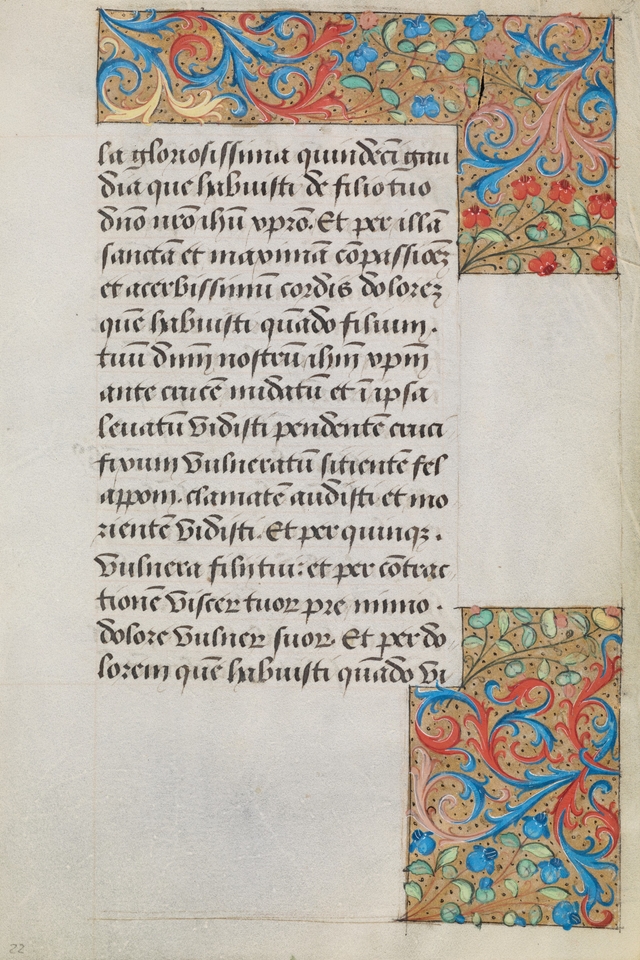 la gloriosissima quindecī gau
dia que habuisti de filio tuo
dn̄o nr̄o ihū xpr̄o. Et per illā
sanctā et maximā cōpassiōeꝫ
et acerbissimū cordis doloreꝫ
quē habuisti quādo filium.
tuū dnm̄ nostrū ihm̄ xpm̄
ante crucē nudatū et ī ipsa
leuatū vidisti pendentē cruci
fixum vulneratū sitientē fel
apponi. clamātē audisti et mo
rientē vidisti. Et per quinqꝫ.
vulnera filij tui: et per cōtrac
tionē visceꝝ tuoꝝ pre nimio.
dolore vulneꝝ suoꝝ. Et per do
lorem quē habuisti quādo vi
22